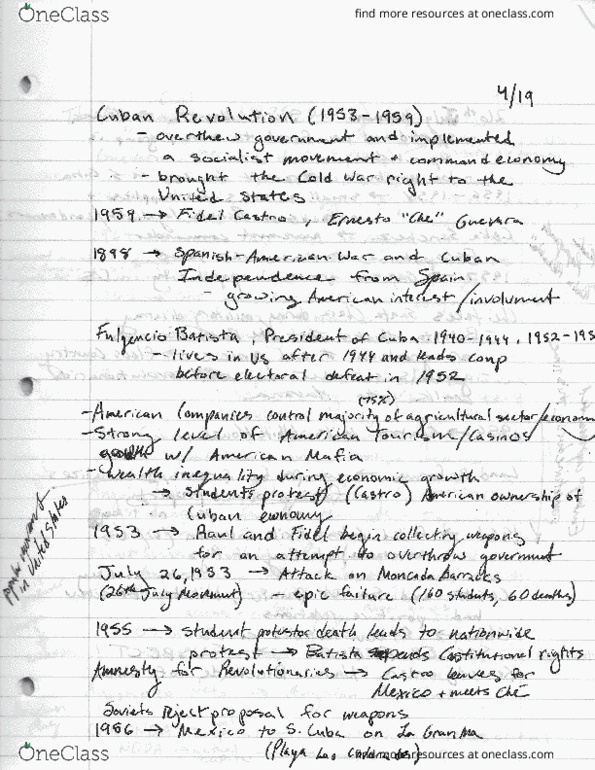 OneClass
find more resources at oneclass.com
4/19
Cuban Revolution (1953-1959)
- overthew government and implemented
a socialist movement + command economy
- brought the Cold War right to the
United States
1959 → Fidel Castro, Ernesto "Che" Guevara
1898 → Spanish-American War and Cuban
Independence from Spain
- growing American interest/involvment
Fulgencio Batista, President of Cuba 1940-1944, 1952-195
- lives in US after 1944 and leads coup
before electoral defeat in 1952
(75%)
- American Companies control majority of agricultural sector/econom
- Strong level of American Tourism/Casinos
w/ American Mafia
- Wealth inequality during economic growth
→ students protest (Castro) American ownership of
Cuban ewonomy
1953 → Raul and Fidel begin collecting weapons
for an attempt to overthrow government
July 26, 1953 → Attack on Moncada Barracks
(26th July Movement) - epic failure (160 students, 60 deaths)
popular support
in United States
1955 → student protestor death leads to nationwide
protest → Batista Constitutional rights
Amnesty for Revolutionaries → Castro leaves for
Mexico + meets Che
Soviets reject proposal for weapons
1956 → Mexico to S. Cuba on La Granma
(Playa Las
OneClass
find more resources at oneclass.com